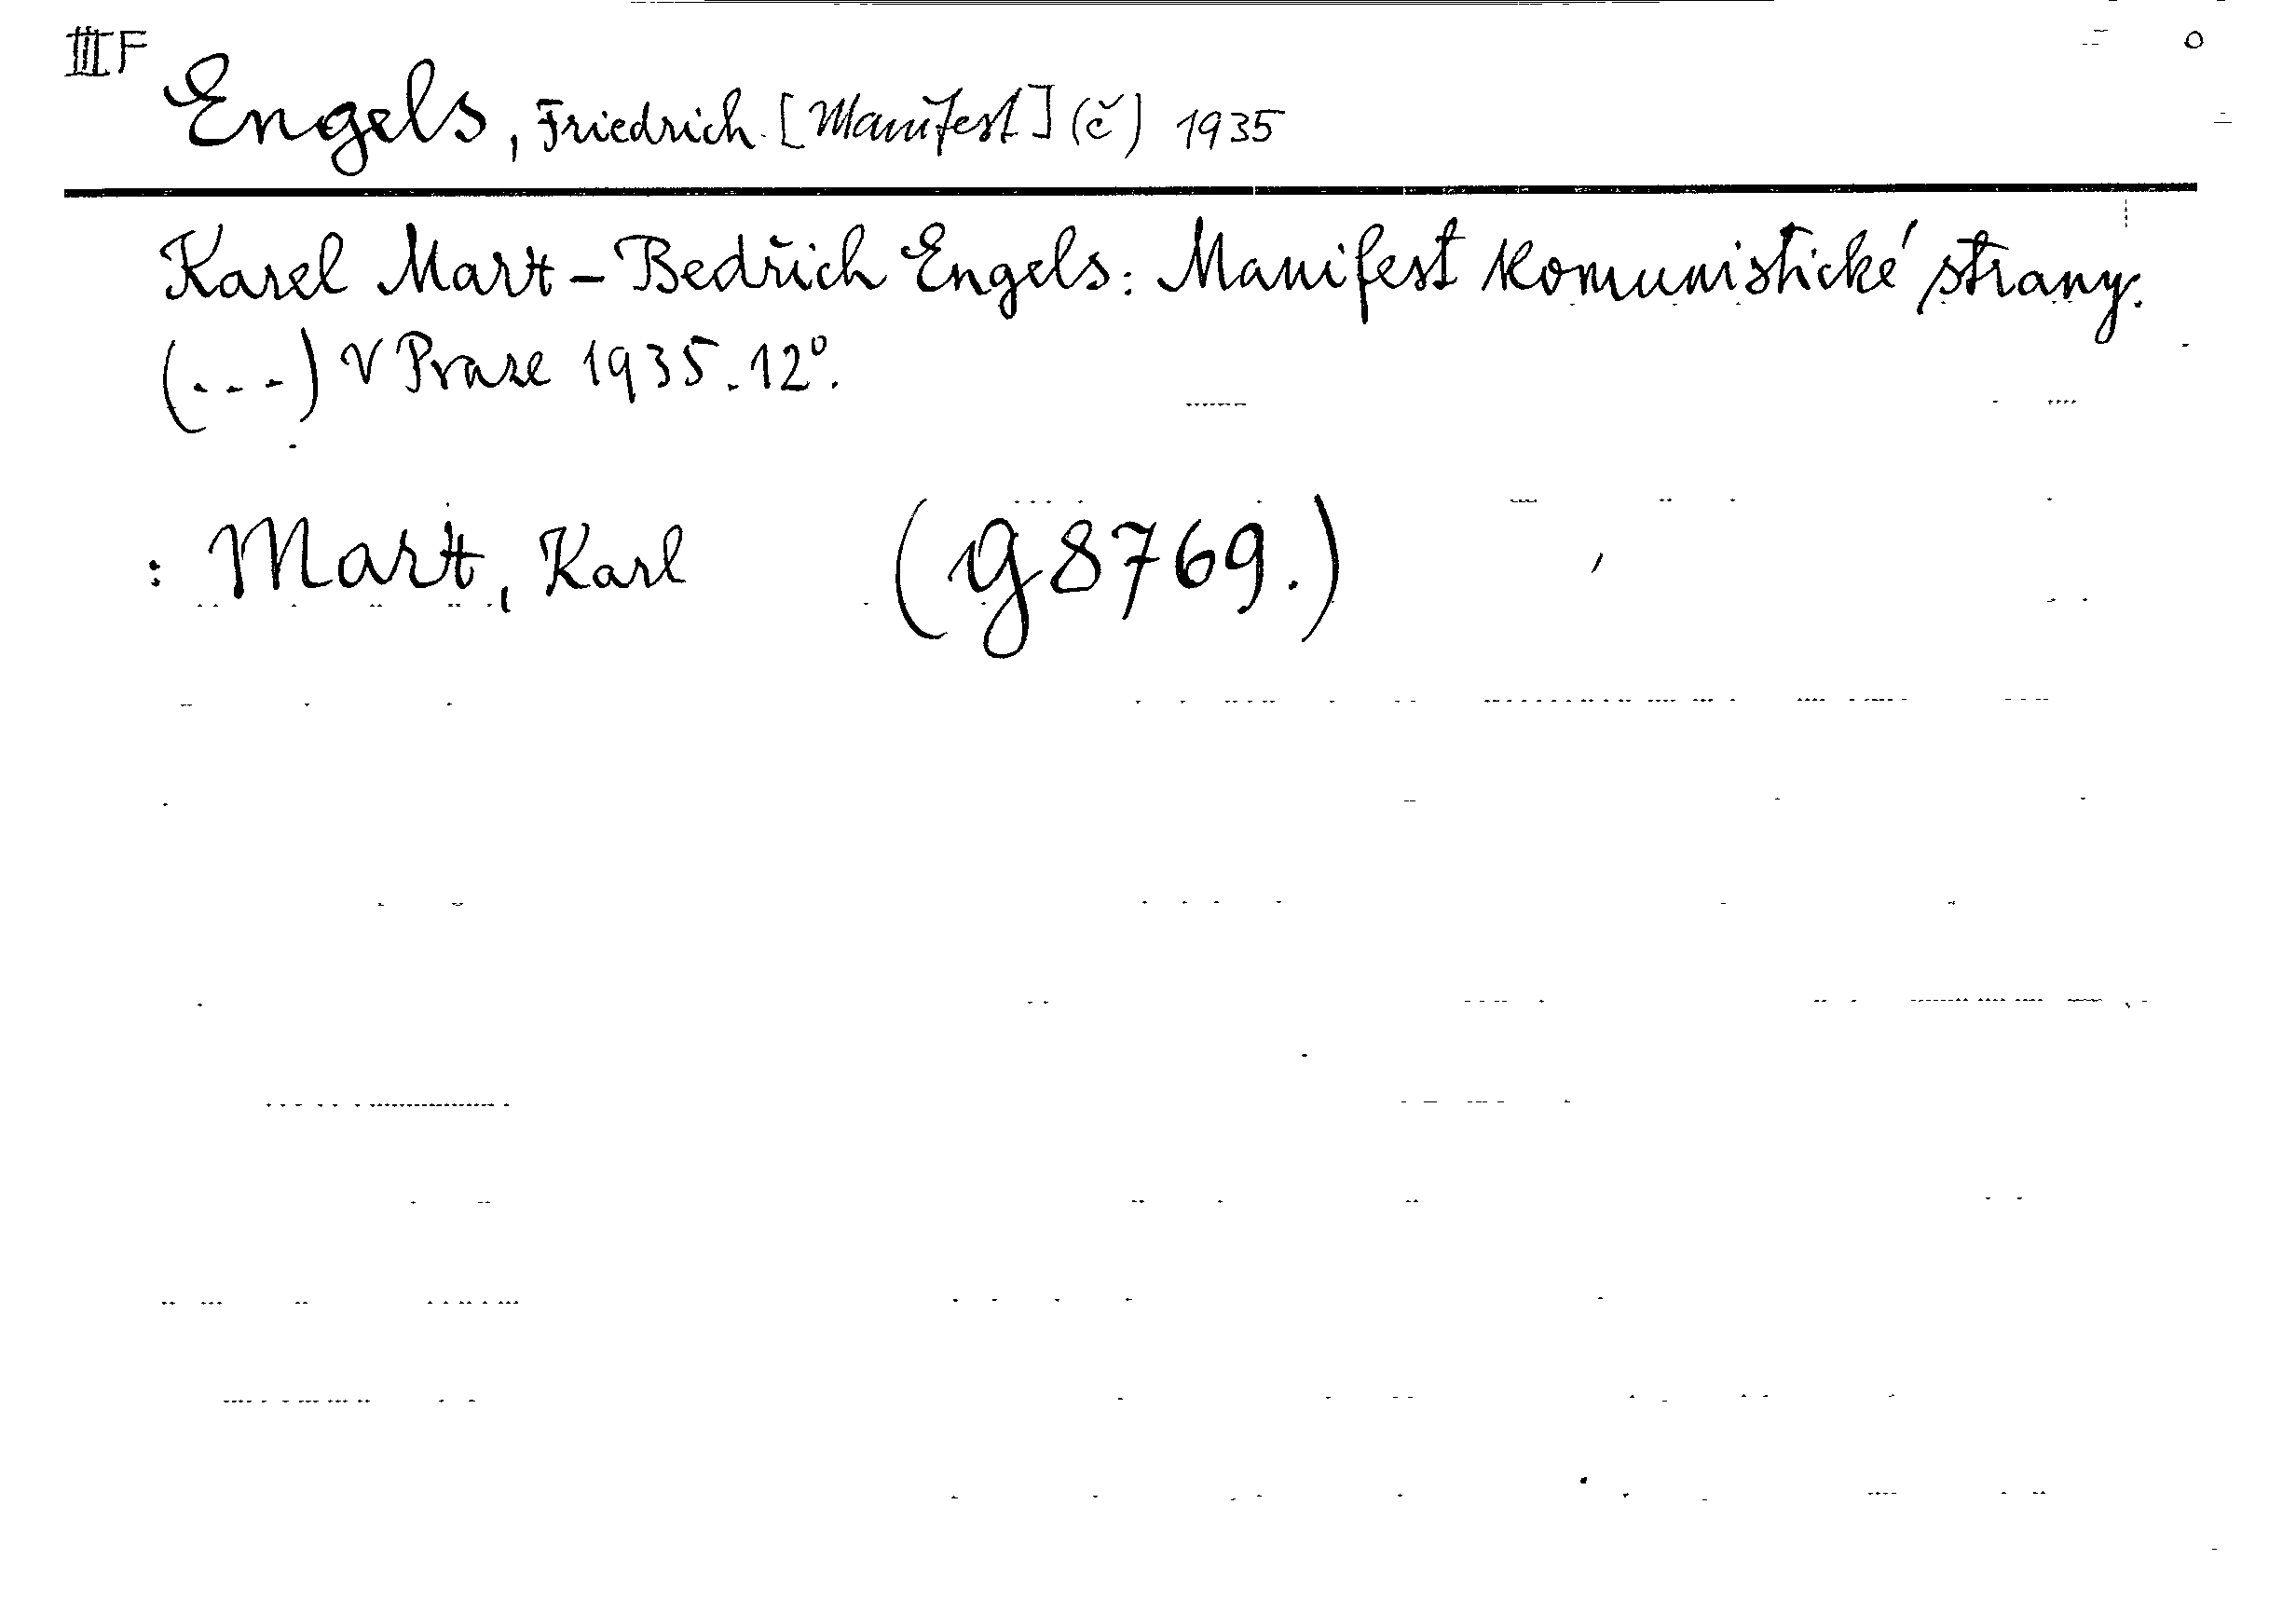 III F
Engels, Friedrich. [Manifest] (č) 1935
Karel Marx - Bedřich Engels: Manifest Komunistické strany.
(...) V Praze 1935. 12°.
: Marx, Karl (g 8769.)